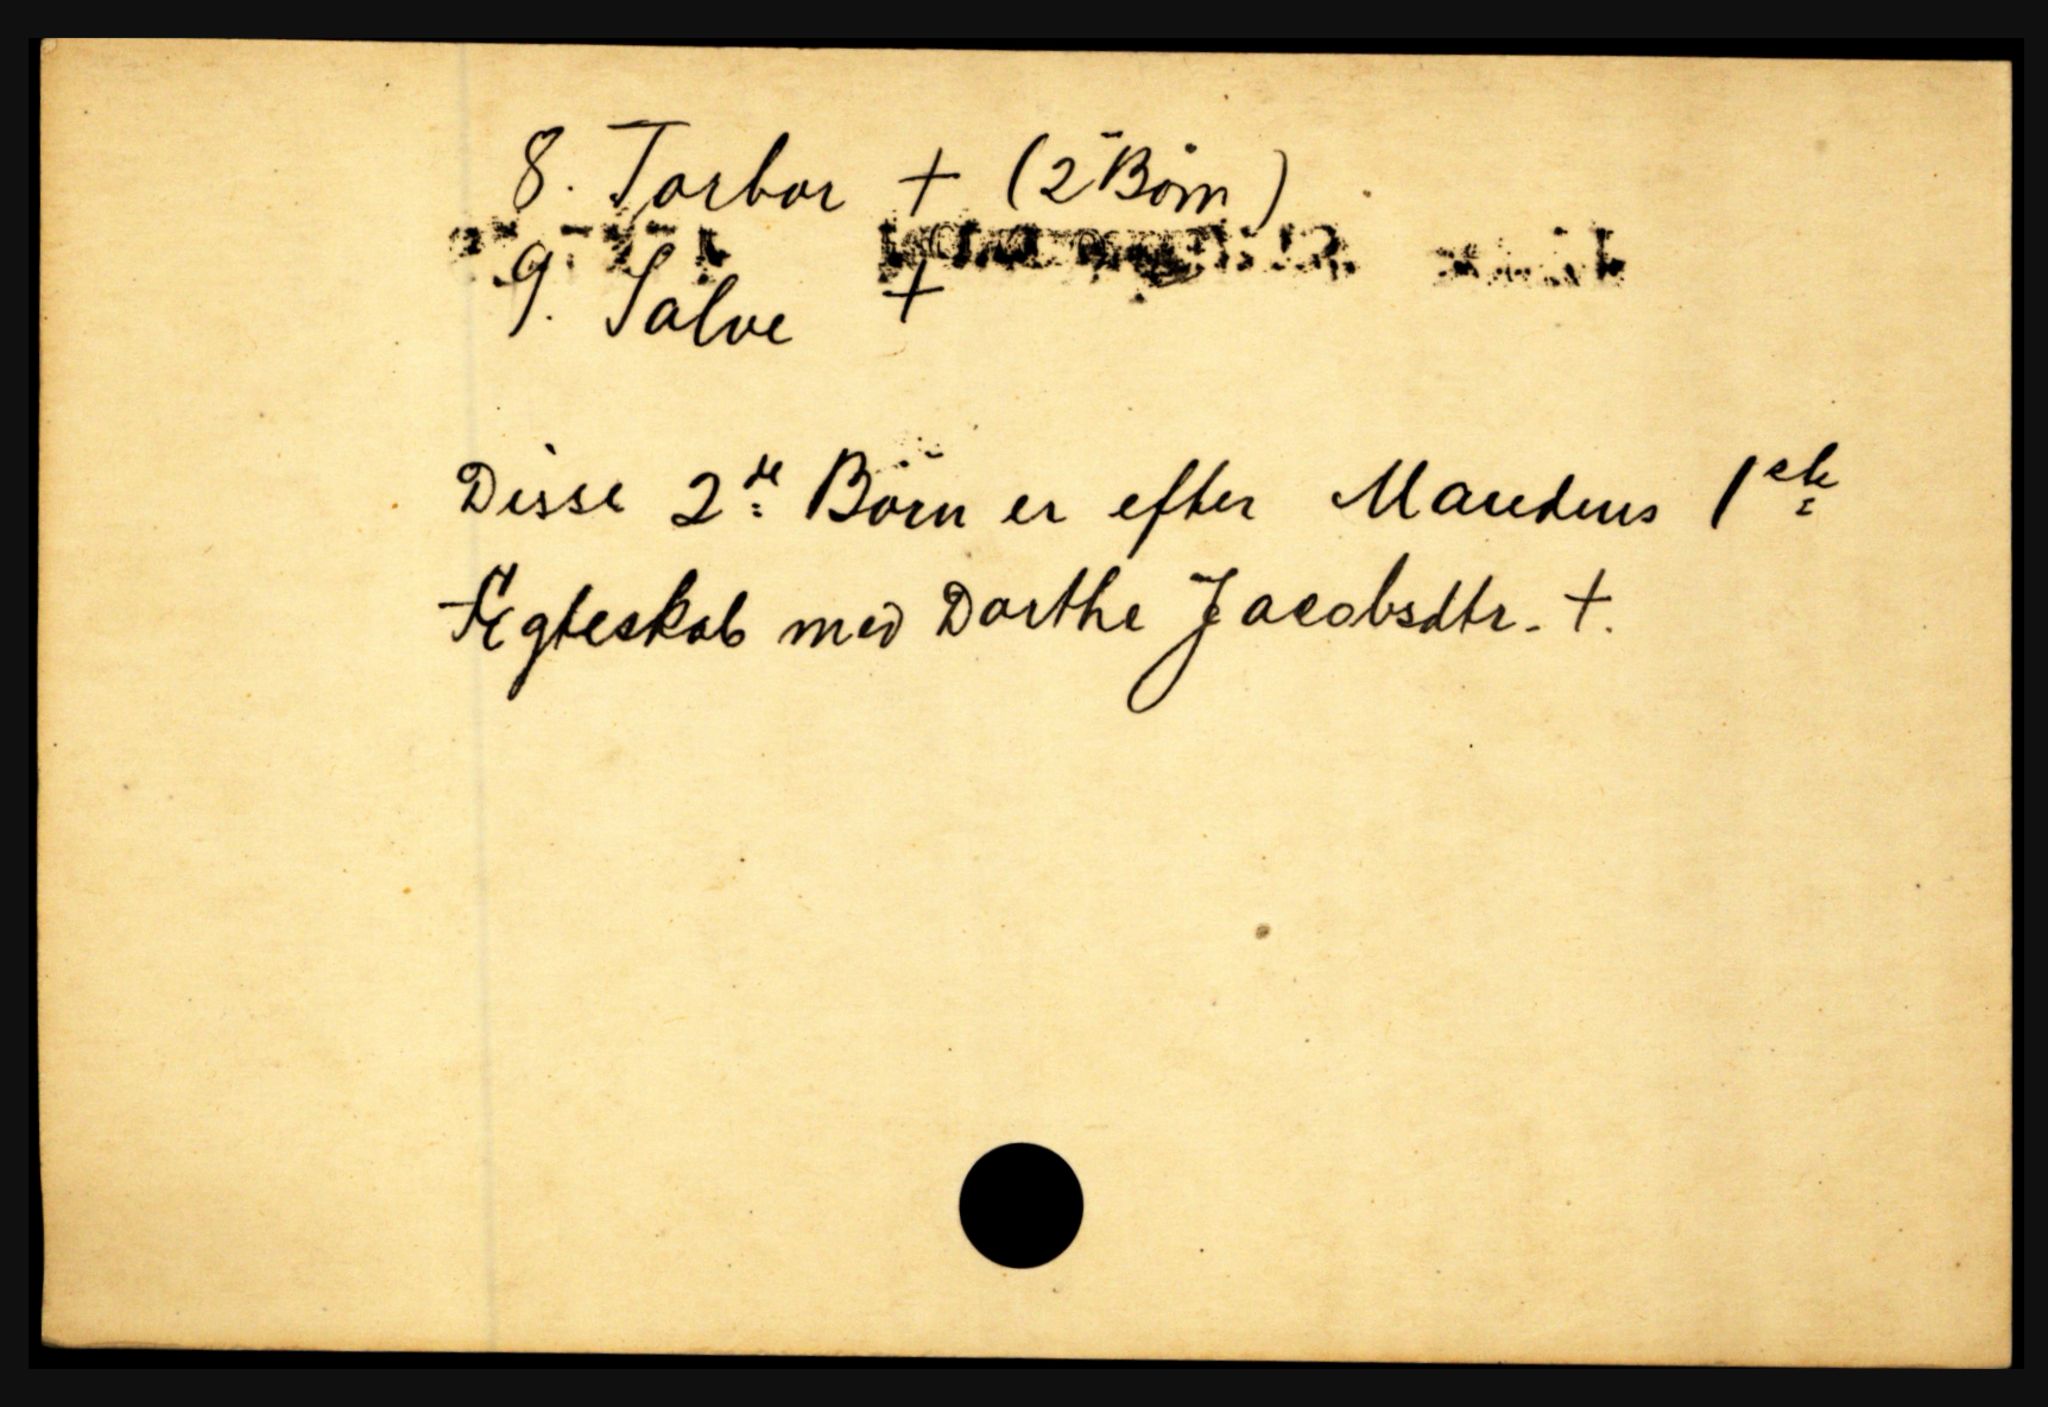 8. Torbor + (2 Börn)
9. Salve +
Disse 2de Börn er efter Mandens 1ste
Ægteskab med Dorthe Jacobsdtr. +.